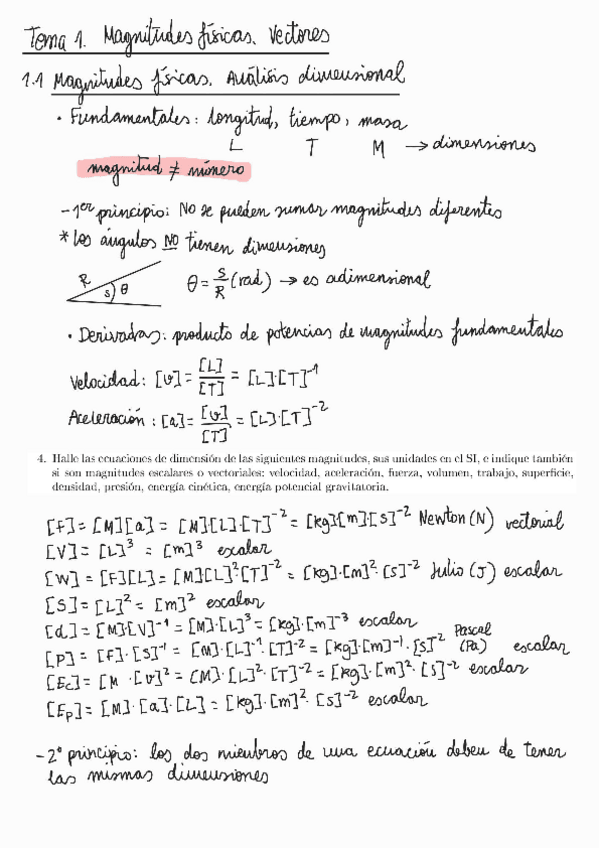 Tema 1. Magnitudes físicas. Vectores
1.1 Magnitudes físicas. Análisis dimensional
· Fundamentales: longitud, tiempo, masa
L T M → dimensiones
magnitud ≠ número
- 1er principio: No se pueden sumar magnitudes diferentes
* los ángulos NO tienen dimensiones
R S θ θ = S/R (rad) → es adimensional
· Derivadas: producto de potencias de magnitudes fundamentales
Velocidad: [v] = [L]/[T] = [L]·[T]⁻¹
Aceleración: [a] = [v]/[T] = [L]·[T]⁻²
4. Halle las ecuaciones de dimensión de las siguientes magnitudes, sus unidades en el SI, e indique también
si son magnitudes escalares o vectoriales: velocidad, aceleración, fuerza, volumen, trabajo, superficie,
densidad, presión, energía cinética, energía potencial gravitatoria.
[F] = [M][a] = [M][L]·[T]⁻² = [kg][m]·[s]⁻² Newton (N) vectorial
[V] = [L]³ = [m]³ escalar
[W] = [F][L] = [M][L]²[T]⁻² = [kg]·[m]²·[s]⁻² Julio (J) escalar
[S] = [L]² = [m]² escalar
[d] = [M]·[V]⁻¹ = [M]·[L]³ = [kg]·[m]⁻³ escalar
[P] = [F]·[S]⁻¹ = [M]·[L]⁻¹·[T]⁻² = [kg]·[m]⁻¹·[s]⁻² Pascal (Pa) escalar
[Ec] = [M·[v]² = [M]·[L]²·[T]⁻² = [kg]·[m]²·[s]⁻² escalar
[Ep] = [M]·[a]·[L] = [kg]·[m]²·[s]⁻² escalar
- 2º principio: los dos miembros de una ecuación deben de tener
las mismas dimensiones